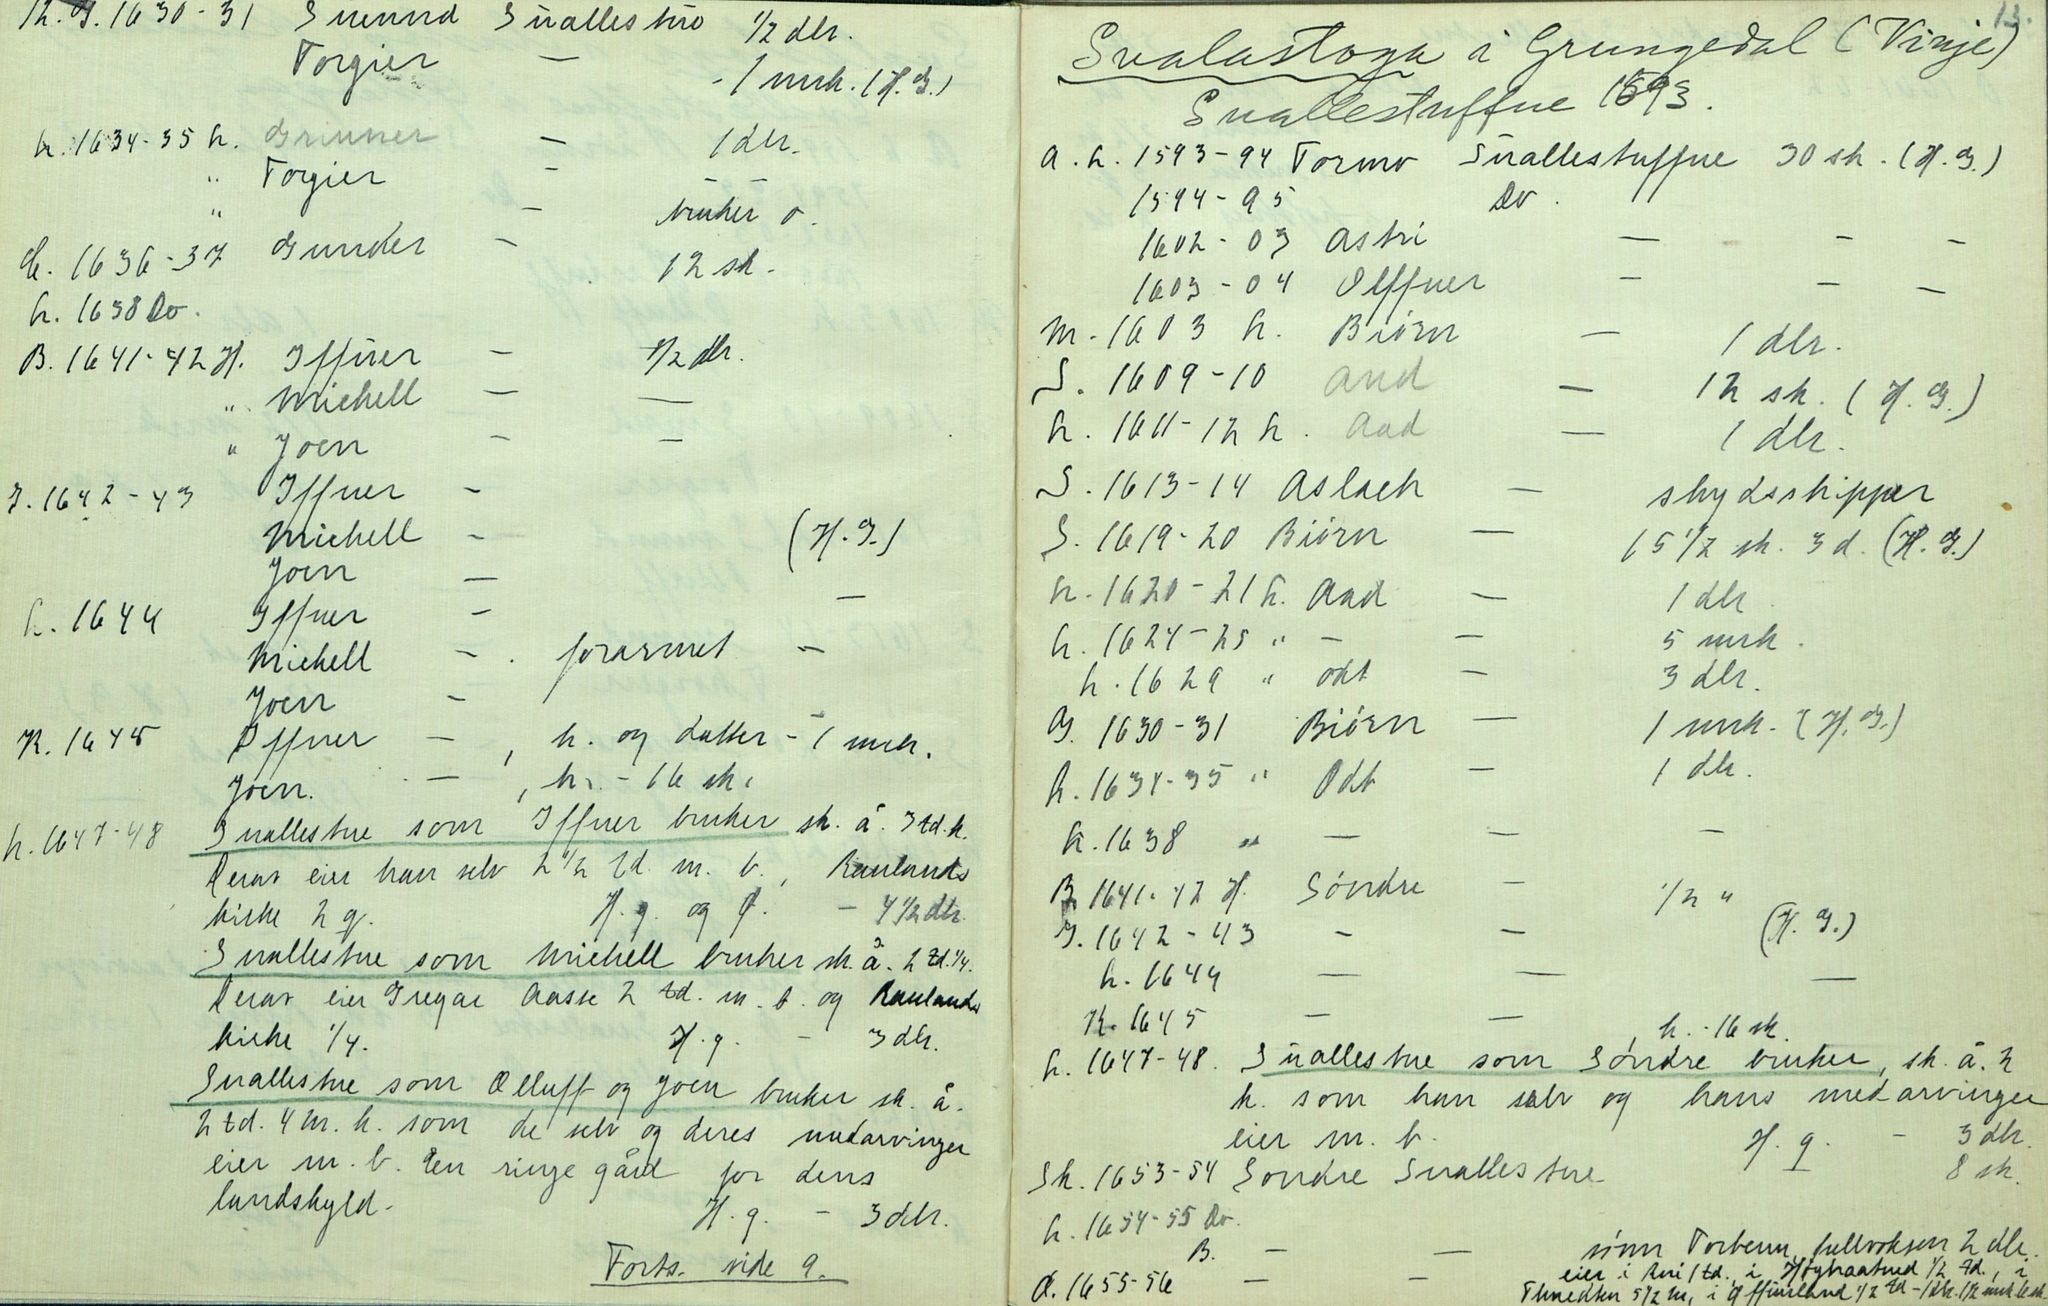 K.G. 1630-31 Suennd Suallestuo 1/2 dlr.
Torgier — - 1 mrk. (H.G.)
L. 1634-35 L. Grinner — 1 dlr.
" Torgier — — —
" — bruker ø.
L. 1636-37 Gunder — 12 sk.
L. 1638 Do.
B. 1641-42 H. Iffuer — 1/2 dlr.
" Michell — —
" Joen — —
J. 1642-43 Iffuer —
Michell — (H.G.)
Joen —
L. 1644 Iffuer — —
Michell — . forarmet —
Joen —
K. 1645 Iffuer — , h. og datter - 1 mrk.
Joen. — , h. - 16 sk.
L. 1647-48 Suallestue som Iffuer bruker sk. å. 3 td. h.
Derav eier han selv 2 1/2 td. m. b., Raulands
kirke 2 q. H.g. og - 4 1/2 dlr.
Suallestue som Michell bruker sk. å. 2 td. 1/4.
Derav eier Gregar Aasse 2 td. m. b. og Raulands
kirke 1/4. H.g. - 3 dlr.
Suallestue som Olluff og Joen bruker sk. å.
2 td. 4 m. h. som de selv og deres medarvinger
eier m. b. En ringe gård for dens
landskyld. H.g. - 3 dlr.
Forts. side 9.
13.
Svalastoga i Grungedal (Vinje)
Suallestuffue 1593.
A. L. 1593-94 Tormo Suallestuffue 30 sk. (H.G.)
1594-95 Do.
1602-03 Astri — — —
1603-04 Olffuer — — —
M. 1603 L. Biørn — 1 dlr.
S. 1609-10 Aud — 12 sk. (H.G.)
L. 1611-12 L. Aad — 1 dlr.
S. 1613-14 Aslach — skydsskipper
S. 1619-20 Biørn — 15 1/2 sk. 3 d. (H.G.)
L. 1620-21 L. Aad — 1 dlr.
L. 1624-25 " — — 5 mrk.
L. 1629 " Odt — 3 dlr.
G. 1630-31 Biørn — 1 mrk. (H.G.)
L. 1634-35 " Odt — 1 dlr.
L. 1638 " — — —
B. 1641-42 H. Søndre — 1/2 "
J. 1642-43 — — (H.G.)
L. 1644 — — —
K. 1645 — — h. - 16 sk.
L. 1647-48. Suallestue som Søndre bruker, sk. å. 2
h. som han selv og hans medarvinger
eier m. b. H.g. - 3 dlr.
Sk. 1653-54 Sondre Suallestue 8 sk.
L. 1654-55 Do.
B. — — sønn Torbenn, fullvoksen 2 dlr.
O. 1655-56 — — eier i 1 td., i 1/2 td., i
5 1/2 m, i 1/2 td -